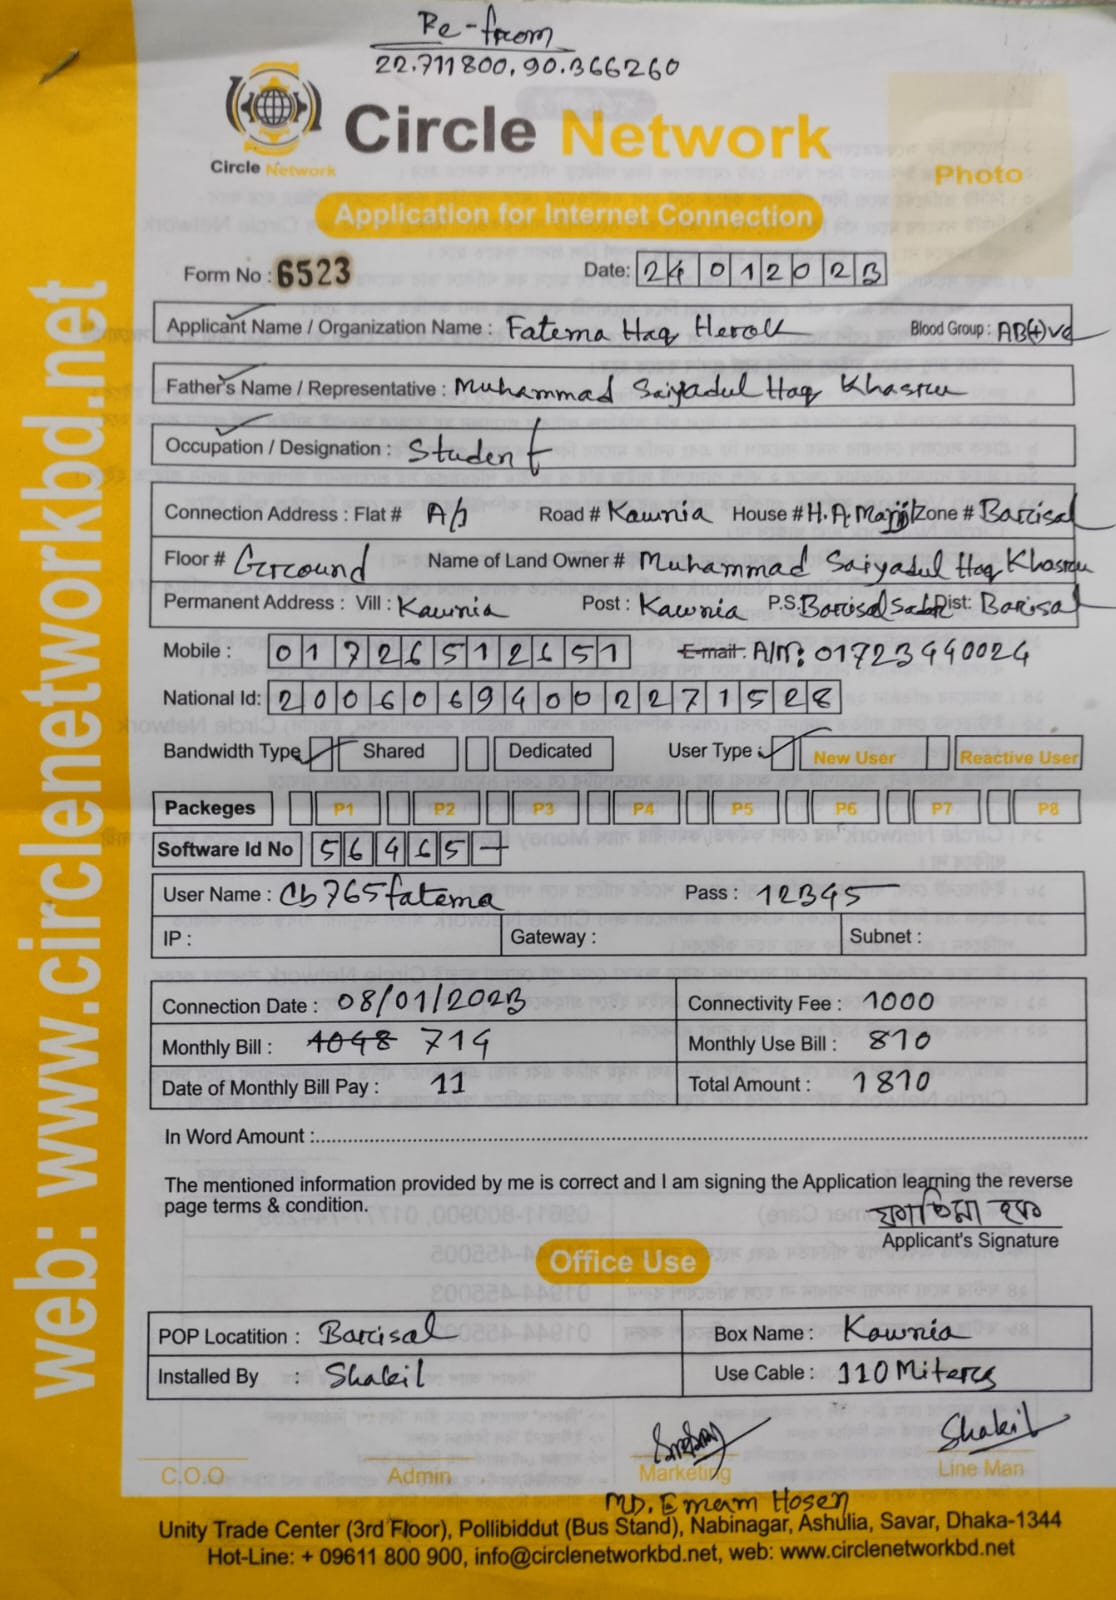 Re-from
22.711800, 90.366260
Circle Network
Circle Network
Photo
Application for Internet Connection
Form No : 6523 Date: 24 01 2023
Applicant Name / Organization Name : Fatema Haq Herok Blood Group : AB(+)ve
Father's Name / Representative : Muhammad Saiyadul Haq Khasru
Occupation / Designation : Student
Connection Address : Flat # A/1 Road # Kawnia House # H.A. Manjil Zone # Barisal
Floor # Ground Name of Land Owner # Muhammad Saiyadul Haq Khasru
Permanent Address : Vill : Kawnia Post : Kawnia P.S. Barisal Sadar Dist: Barisal
Mobile : 01726512651 E-mail : A/N: 01723990024
National Id: 20060694002271528
Bandwidth Type Shared Dedicated User Type New User Reactive User
Packeges P1 P2 P3 P4 P5 P6 P7 P8
Software Id No 56465 -
User Name : Cb765fatema Pass : 12345
IP : Gateway : Subnet :
Connection Date : 08/01/2023 Connectivity Fee : 1000
Monthly Bill : 1048 714 Monthly Use Bill : 810
Date of Monthly Bill Pay : 11 Total Amount : 1810
In Word Amount :
The mentioned information provided by me is correct and I am signing the Application learning the reverse
page terms & condition.
ফাতিমা হক
Applicant's Signature
Office Use
POP Locatition : Barisal Box Name : Kawnia
Installed By : Shakil Use Cable : 110 Miters
Shakil
C.O.O Admin Marketing Line Man
MD. Emam Hosen
Unity Trade Center (3rd Floor), Pollibiddut (Bus Stand), Nabinagar, Ashulia, Savar, Dhaka-1344
Hot-Line: + 09611 800 900, info@circlenetworkbd.net, web: www.circlenetworkbd.net
web: www.circlenetworkbd.net